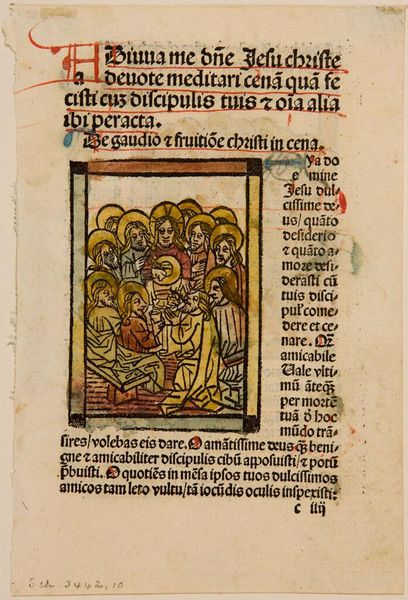 ADiuua me dñe Jesu christe
a deuote meditari cenã quã fe
cisti cuz discipulis tuis ⁊ oĩa alia
ibi peracta.
De gaudio ⁊ fruitiõe christi in cena.
Ya do
e mine
Jesu dul⸗
cissime de⸗
us/ quãto
desiderio
⁊ quãto a⸗
more desi⸗
derasti cũ
tuis disci
pul' come⸗
dere et ce⸗
nare. O
amicabile
Uale vlti⸗
mũ ãteq̃
per mortẽ
tuã hoc
mũdo trã⸗
sires/ volebas eis dare. O amãtissime deus q̃ beni⸗
gne ⁊ amicabiliter discipulis cibũ apposuisti/ ⁊ potũ
p̃buisti. O quotiẽs in mẽsa ipsos tuos dulcissimos
amicos tam leto vultu/ tã iocũdis oculis inspexisti:
c iiij
Sch. 3442, 10